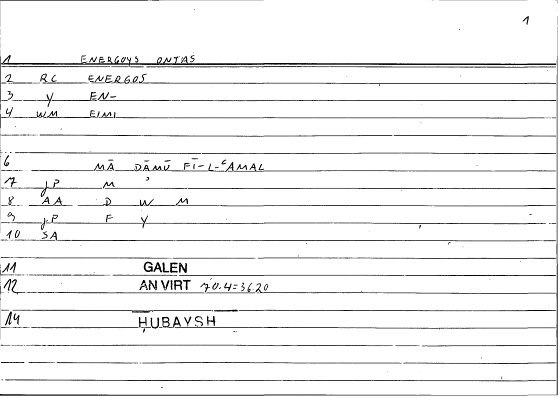 1
1 ENERGOYS ONTAS
2 RC ENERGOS
3 Y EN-
4 WM EIMI
6 MĀ DĀMŪ FĪ-L-ʿAMAL
7 JP M ʾ
8 AA D W M
9 JP F Y
10 SA
11 GALEN
12 AN VIRT 70.4=3620
14 ḤUBAYSH